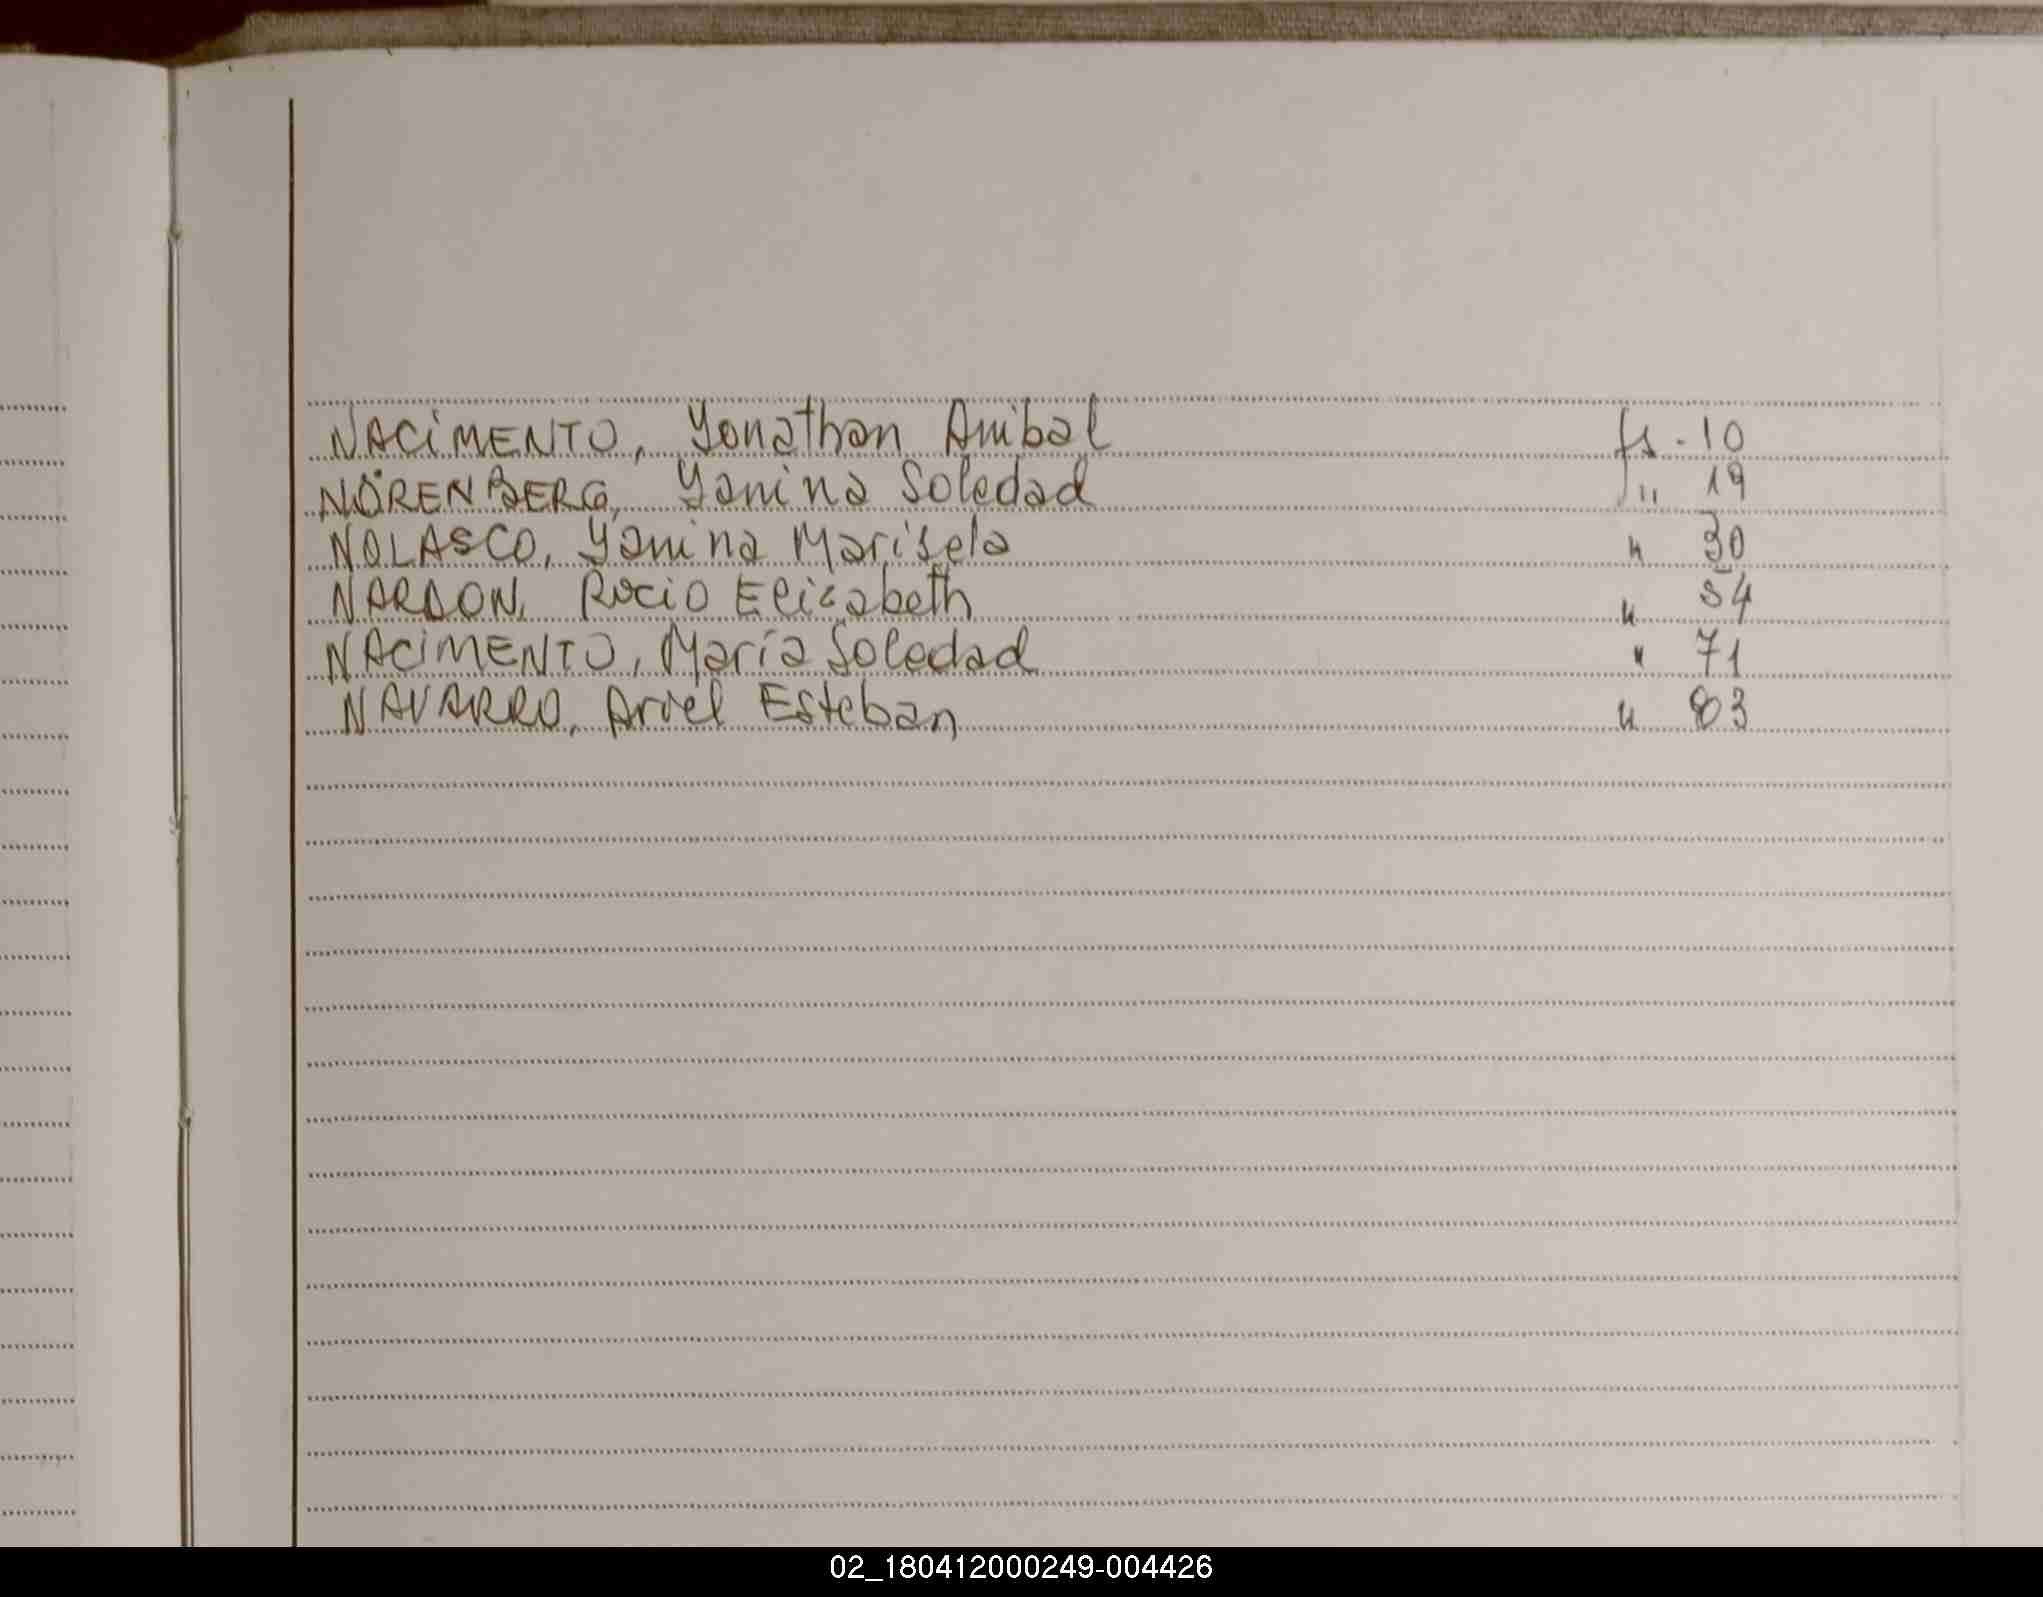 NACIMENTO, Yonathan Anibal fs. 10
NÖRENBERG, Yanina Soledad " 19
NOLASCO, Yanina Marisela " 30
NARDON, Rocio Elizabeth " 54
NACIMENTO, María Soledad " 71
NAVARRO, Ariel Esteban " 83
02_180412000249-004426